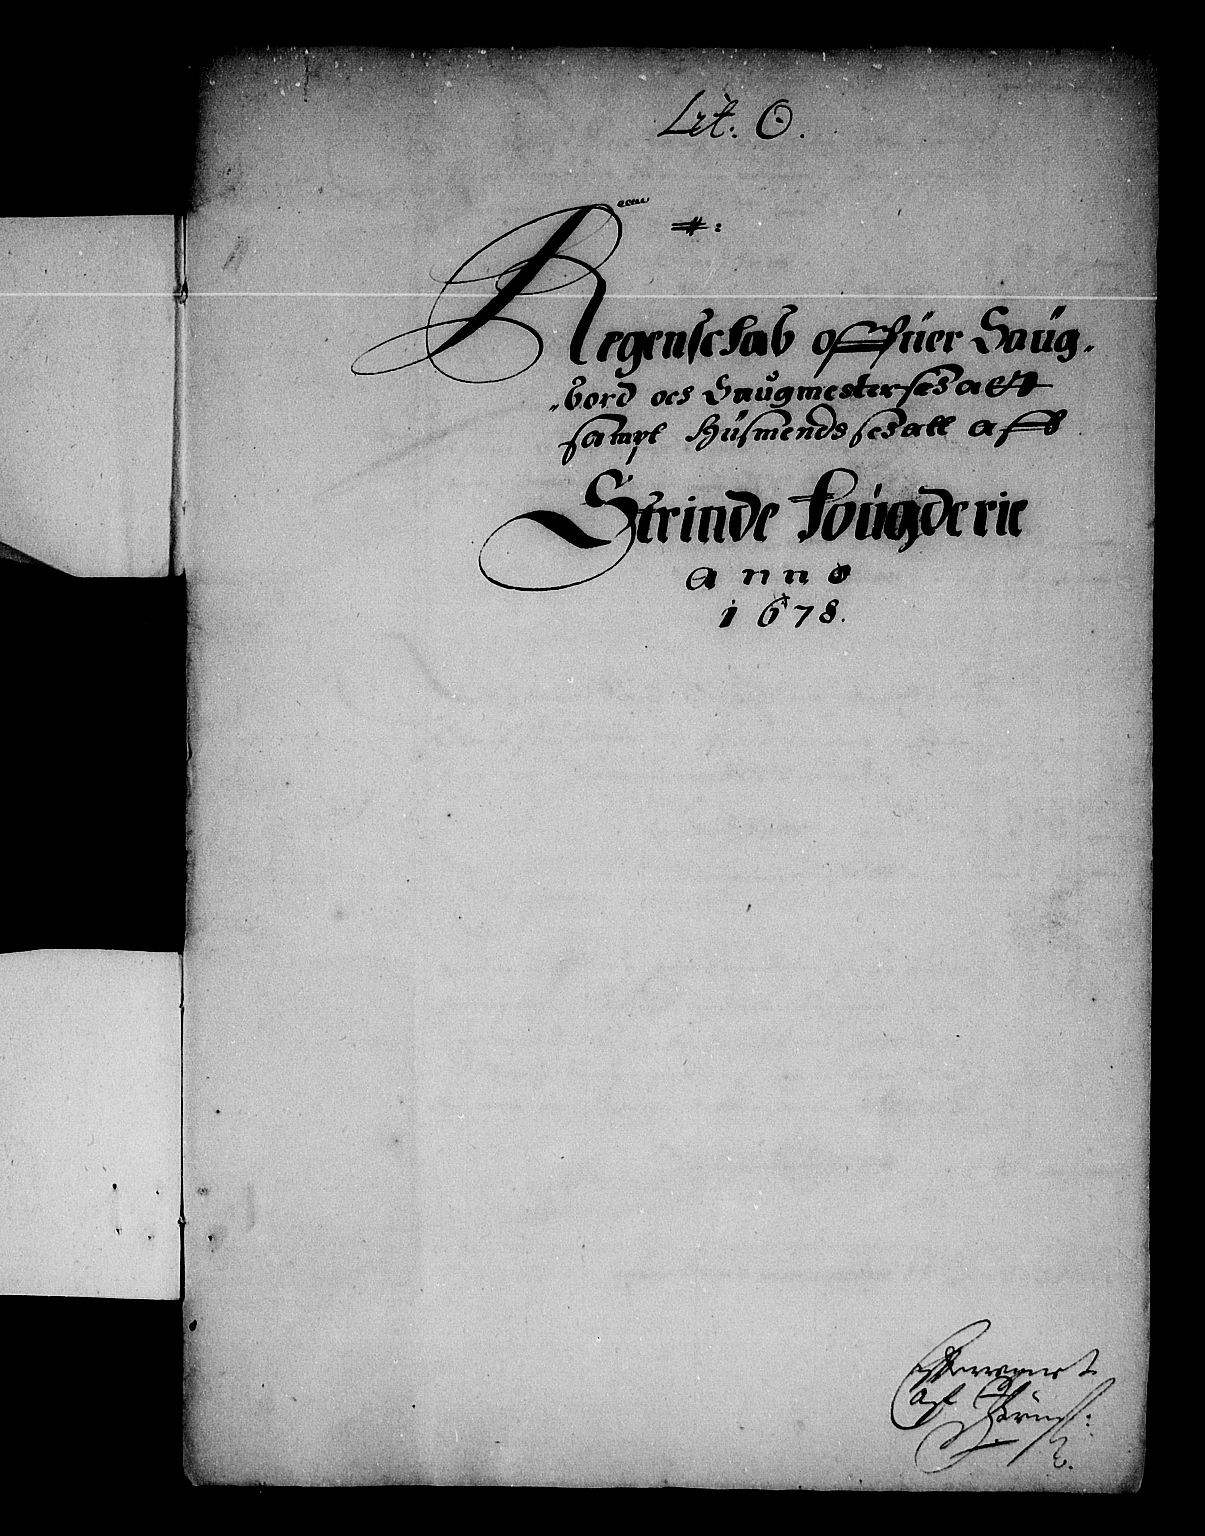 Lit. O.
Regenschab offüer Saug-
bord och Saugmesterschatt
sampt Hüsmends schatt aff
Strinde fougderie
Anno
1678.